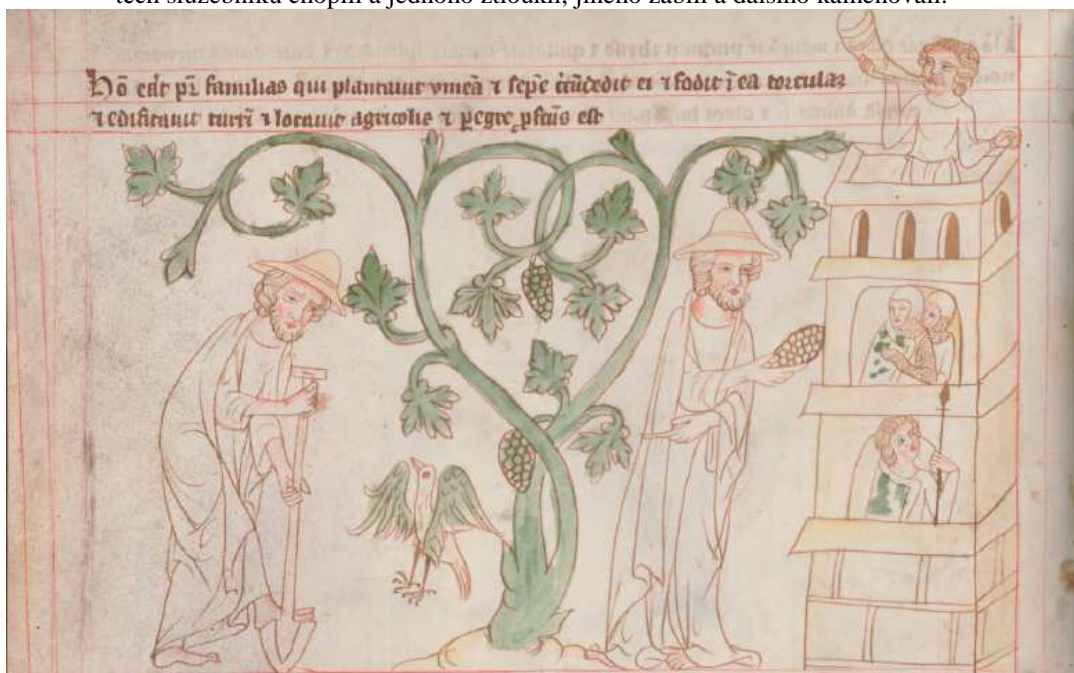 těch služebníků chopili a jednoho ztloukli, jiného zabili a dalšího kamenovali.
Hō erat pr̄ familias qui plantauit vineā ⁊ sepē c̄cūdedit ei ⁊ fodit ī ea torcular
⁊ edificauit turrī ⁊ locauit agricolis ⁊ ꝑegre est